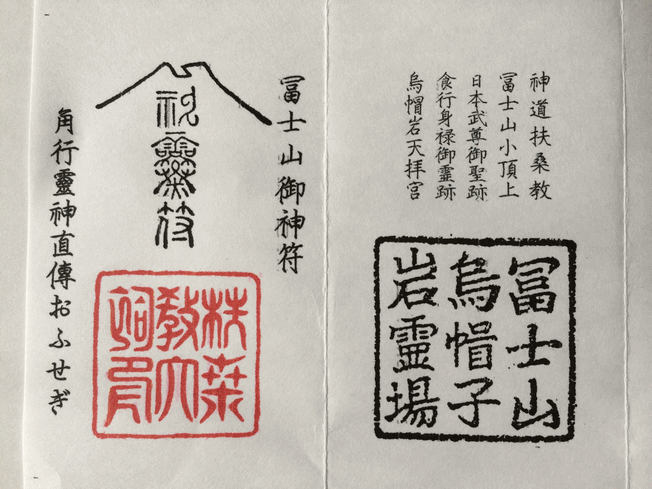 神道扶桑教
冨士山小頂上
日本武尊御聖跡
食行身禄御霊跡
烏帽岩天拝宮
冨士山
烏帽子
岩霊場
冨士山御神符
扶桑
教大
角行靈神直傳おふせぎ